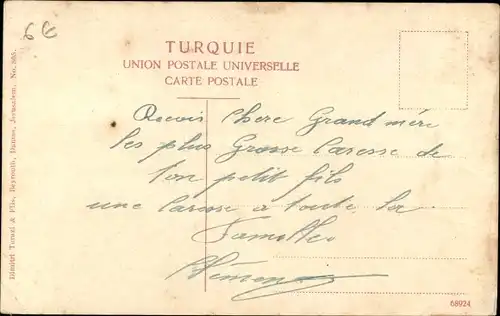 6€
TURQUIE
UNION POSTALE UNIVERSELLE
CARTE POSTALE
Recois Chere Grand mère
les plus Grosse Caresse de
ton petit fils
une Caresse a toute la
Famille
Dimitri Tarazi & Fils, Beyrouth, Damas, Jerusalem. No.
68924